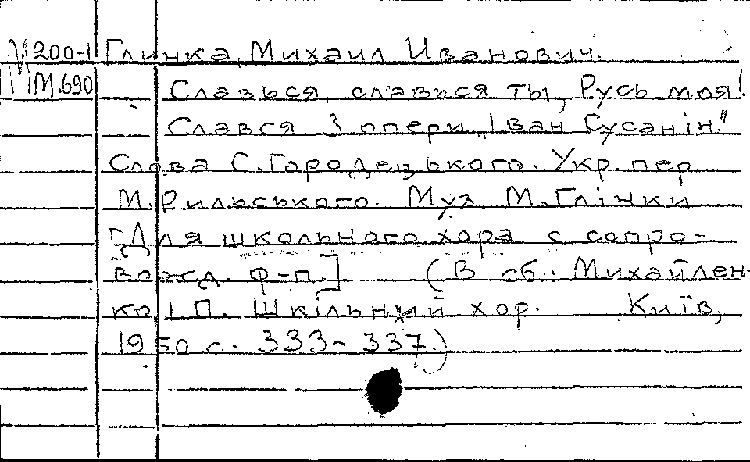 М 200-1 Глинка, Михаил Иванович.
М.690 Славься, славься ты, Русь моя!
Слався З опери „Іван Сусанін."
Слова С. Городецького. Укр. пер
М. Рильського. Муз М. Глінки
[Для школьного хора с сопро-
вожд. ф-п.] (В сб.: Михайлен-
ко, І П. Шкільний хор. Київ,
1950 с. 333-337)